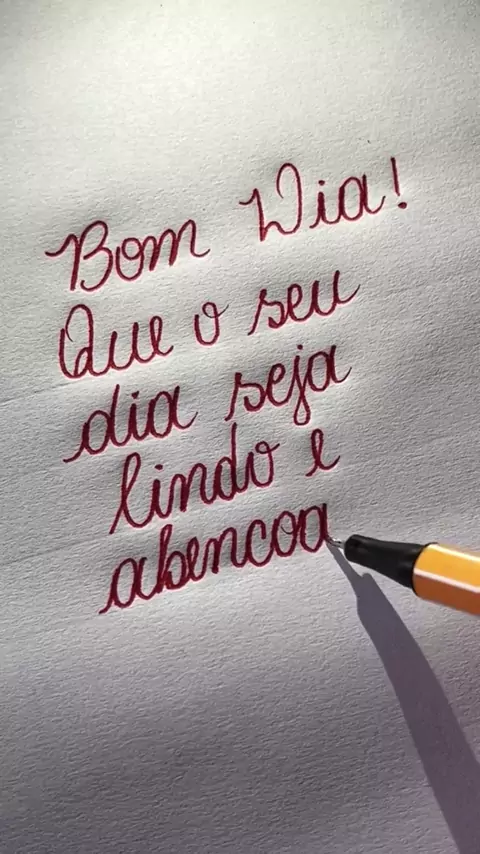 Bom Dia!
Que o seu
dia seja
lindo e
abencoa